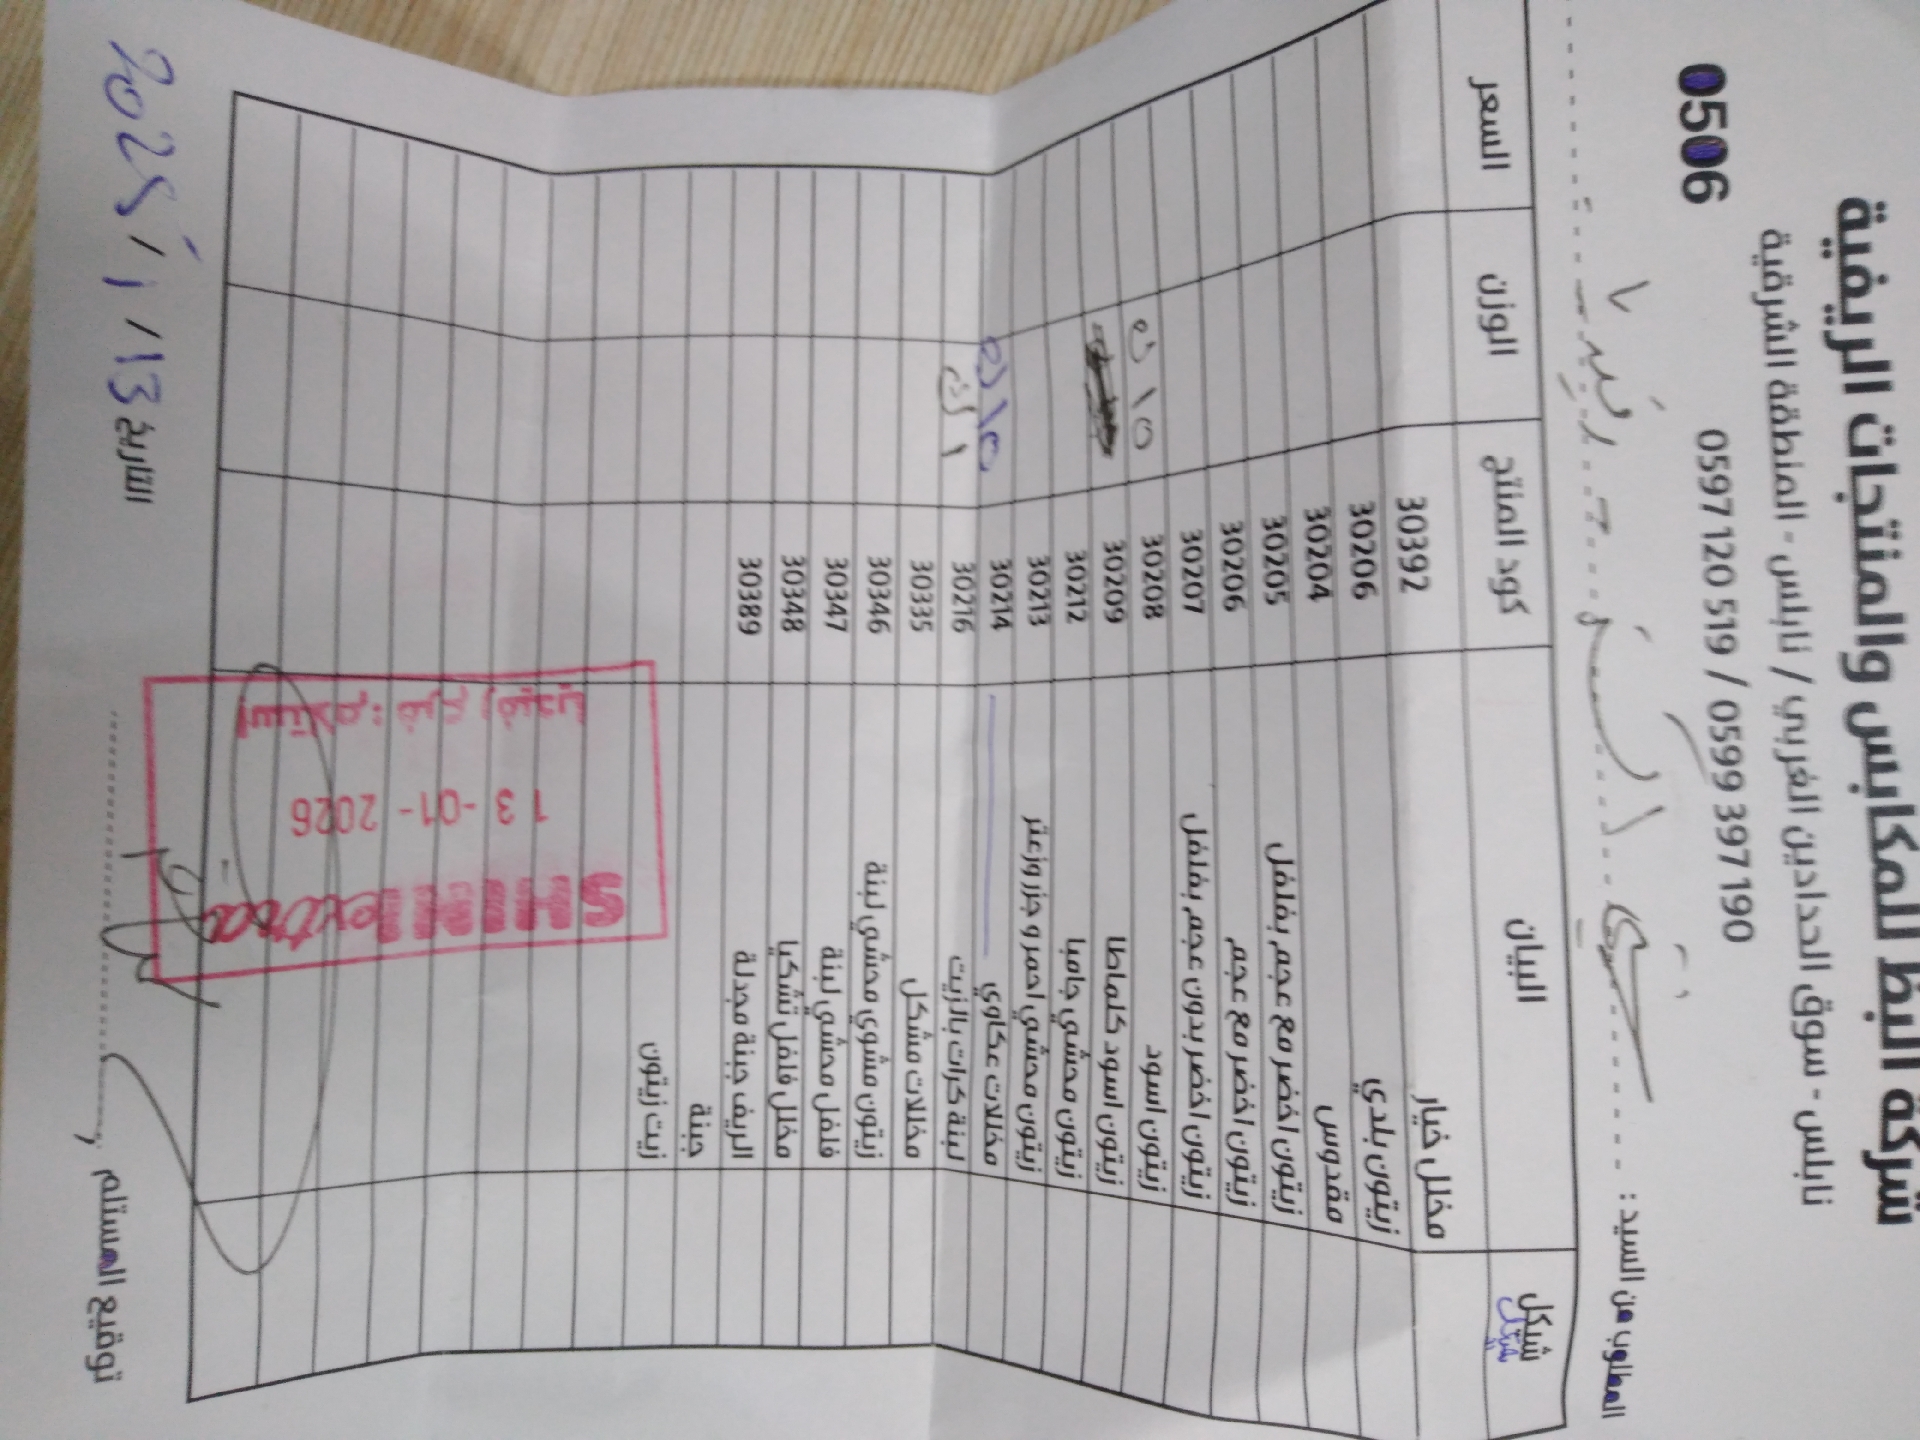 شركة البظ للمكابس والمنتجات الريفية
نابلس - سوق الحدادين الغربي / نابلس - المنطقة الشرقية
0506 0597 120 519 / 0599 397 190
المطلوب من السيد :
شيكل البيان كود المنتج الوزن السعر
شيكل
مخلل خيار 30392
زيتون بلدي 30206
مقدوس 30204
زيتون اخضر مع عجم بفلفل 30205
زيتون اخضر مع عجم 30206
زيتون اخضر بدون عجم بفلفل 30207
زيتون اسود 30208
زيتون اسود كلماطا 30209
زيتون محشي جامبا 30212
زيتون محشي احمر و جزر وزعتر 30213
مخللات عكاوي 30214
لبنة كرات بالزيت 30216
مخللات مشكل 30335
زيتون مشوي محشي لبنة 30346
فلفل محشي لبنة 30347
مخلل فلفل تشكيا 30348
الريف جبنة مجدلة 30389
جبنة
زيت زيتون
SHINI extra
13-01-2026
استلام : فرع رفيديا
توقيع المستلم
التاريخ 13 / 1 / 2025